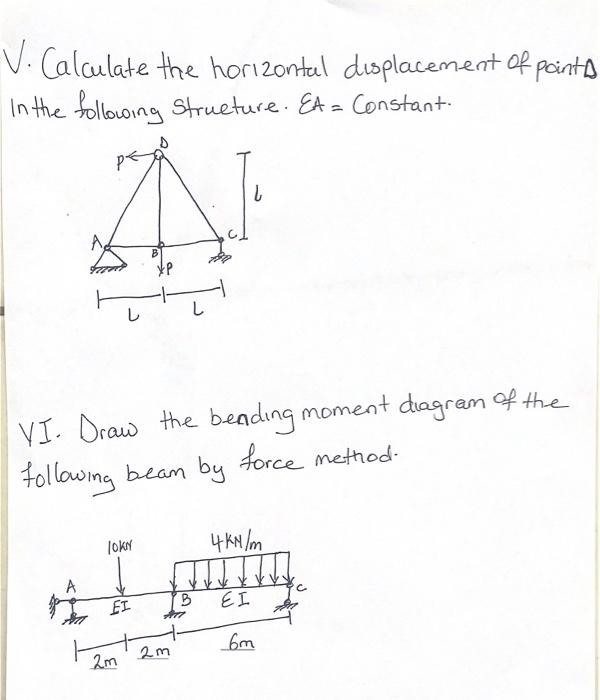 V. Calculate the horizontal displacement of point D
In the following structure. EA = Constant.
D
P
L
A
B
C
P
L
L
VI. Draw the bending moment diagram of the
following beam by force method.
10KN
4KN/m
A
EI
B
EI
C
2m
2m
6m